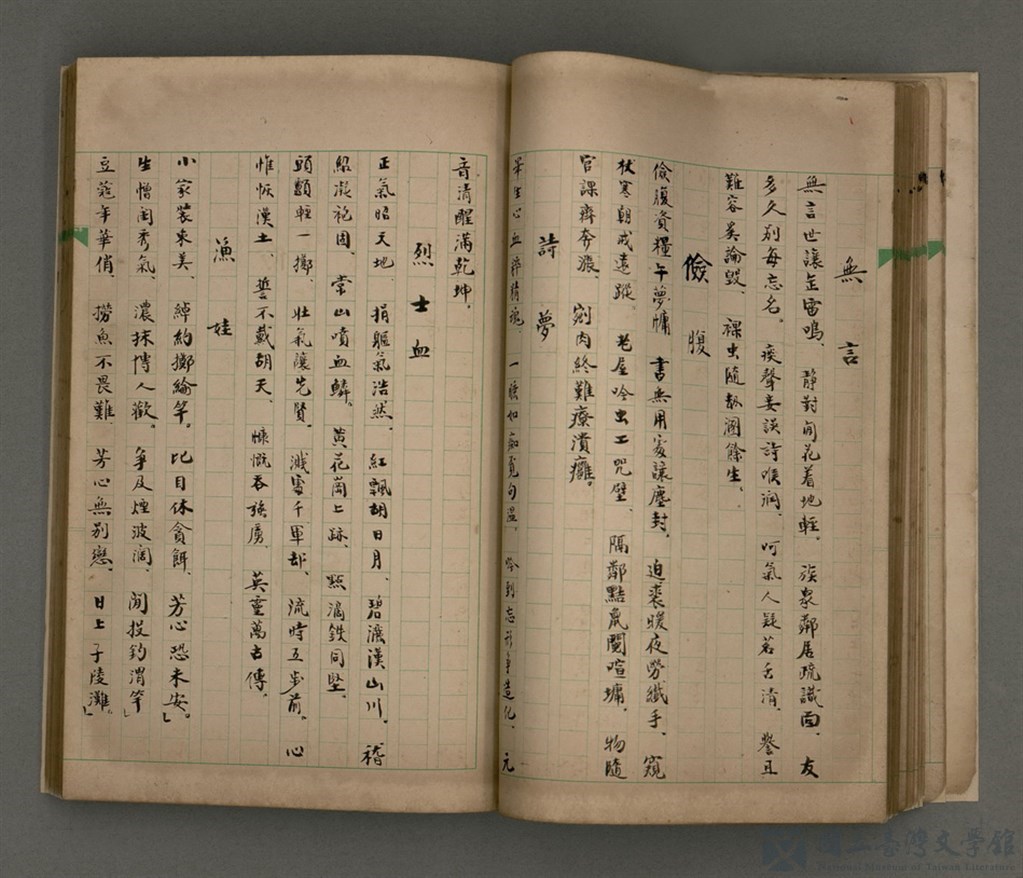 無言
無言世讓缶雷鳴、靜對閒花着地輕。族衆鄰居疏識面、友
多久別每忘名。痰聲妄談詩喉润、呵氣人疑茗舌清、譽且
難容奚論毀、裸虫隨劫溷餘生、
儉腹
儉腹資糧午夢慵書無用處讓塵封、迫裘暖夜勞纖手、窺
杖寒朝成遠蹤、老屋吟虫工咒壁、隔鄰黠鼠鬪喧墉。物隨
官課齊奔濺、剜肉終難療潰癰。
詩夢
畢生心血淬精魂、一睡似痴覓句温、吟到忘形爭造化、元
音清醒滿乾坤。
烈士血
正氣昭天地、捐軀氣浩然、紅飄胡日月、碧濺漢山川、嵇
紹凝袍固、常山噴血鱗。黄花崗上跡、點滴鉄同堅、
頭顱輕一擲、壯氣讓先賢。濺處千軍却、流時五步前。心
惟恢漢土、誓不戴胡天、慷慨吞強虜、英靈萬古傳、
漁娃
小家装束美、綽約擲綸竿。比目休貪餌、芳心恐未安。」
生憎閨秀氣濃抹博人歡。爭及煙波濶、閒投釣渭竿」
豆蔻年華俏、撈魚不畏難、芳心無別戀、日上子陵灘。」
國立臺灣文學館
National Museum of Taiwan Literature